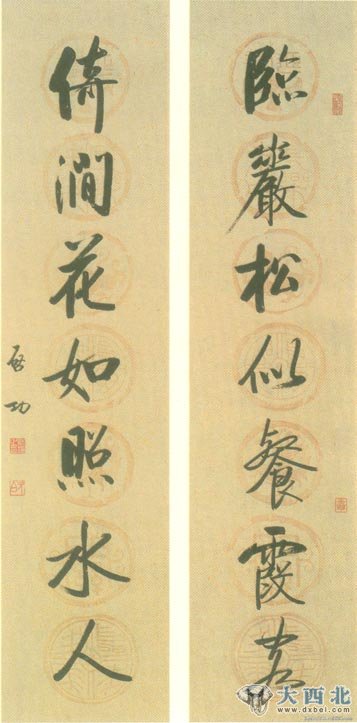 臨巖松似餐霞客
倚澗花如照水人
啟功
大西北
www.dxbei.com